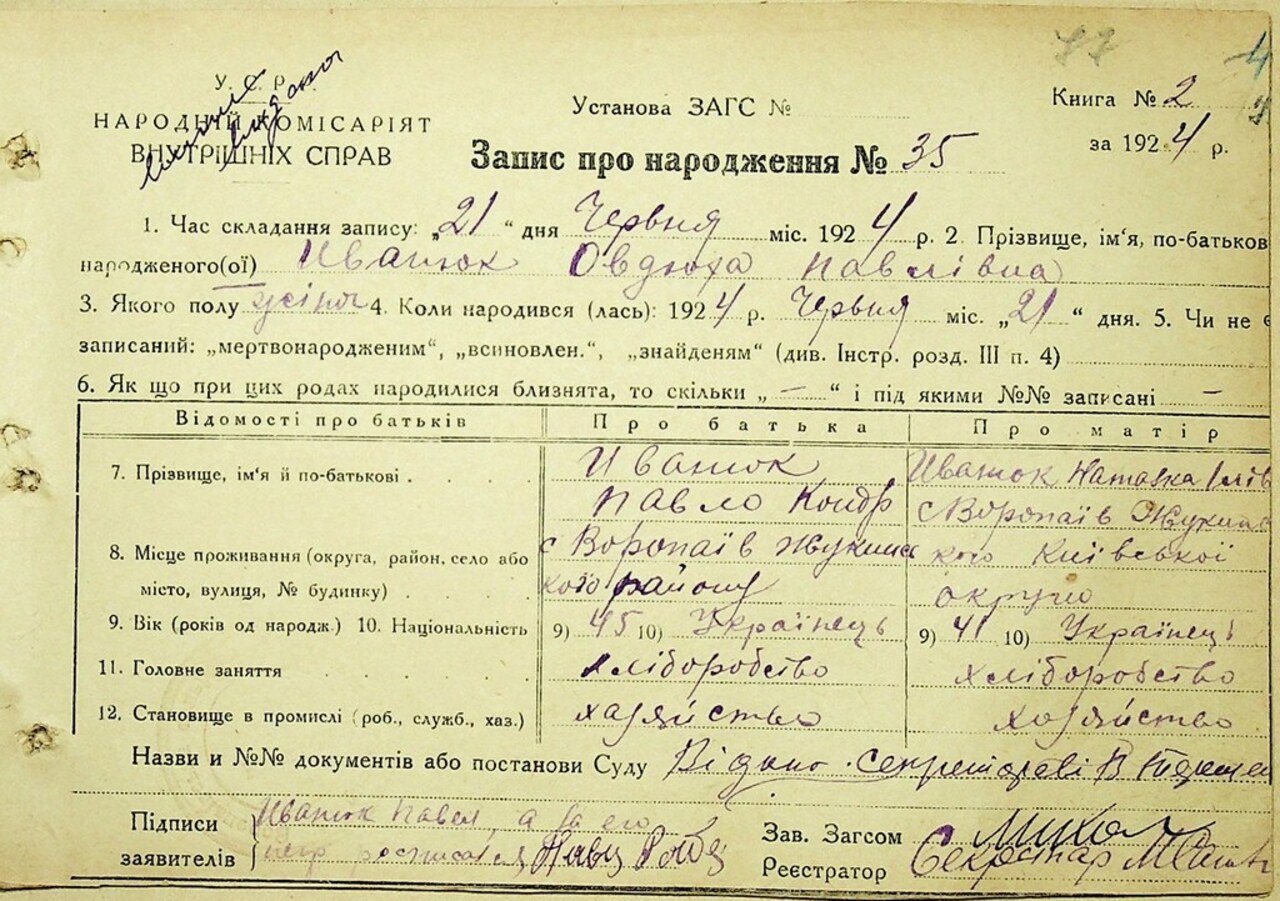 У. С. Р.
НАРОДНІЙ КОМІСАРІЯТ
ВНУТРІШНІХ СПРАВ
Установа ЗАГС №
Книга № 2
за 1924 р.
Запис про народження № 35
1. Час складання запису: „21“ дня Червня міс. 1924 р. 2. Прізвище, ім'я, по-батькові
народженого(ої) Иванюк Овдюха Павлівна
3. Якого полу жіноч 4. Коли народився (лась): 1924 р. Червня міс. „21“ дня. 5. Чи не є
записаний: „мертвонародженим“, „всиновлен.“, „знайденям“ (див. Інстр. розд. III п. 4)
6. Як що при цих родах народилися близнята, то скільки „—“ і під якими №№ записані —
Відомості про батьків Про батька Про матір
7. Прізвище, ім'я й по-батькові Иванюк Иванюк Наталка
Павло Кондр с Воропаїв
8. Місце проживання (округа, район, село або с Воропаїв Київської
місто, вулиця, № будинку) району округи
9. Вік (років од народж.) 10. Національність 9) 45 10) Українець 9) 41 10) Українець
11. Головне заняття хліборобство хліборобство
12. Становище в промислі (роб., служб., хаз.) хазяйство хазяйство
Назви и №№ документів або постанови Суду Видано Секретареві
Підписи Иванюк Павел, а за его
заявителів
Зав. Загсом
Реєстратор Секретар